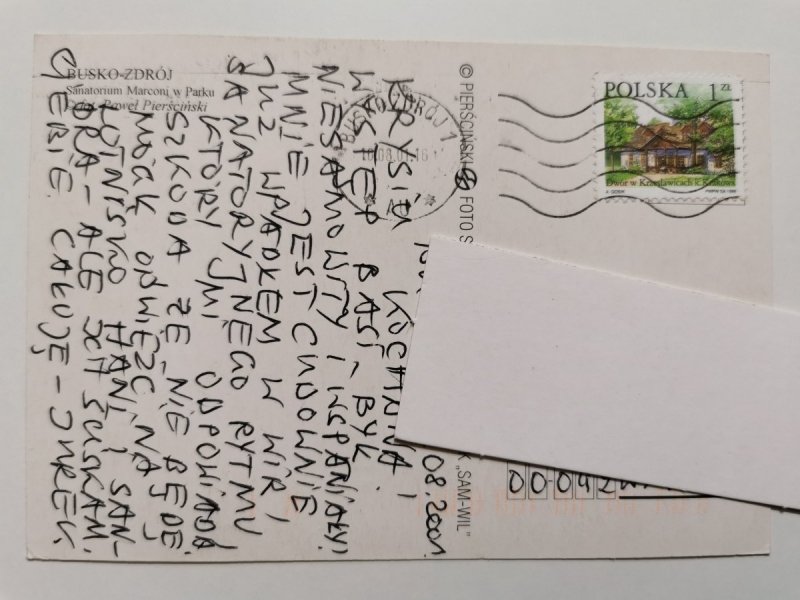 BUSKO-ZDRÓJ
Sanatorium Marconi w Parku
Fotogr. Paweł Pierściński
BUSKO-ZDRÓJ 1
POLSKA 1 ZŁ
Dwór w Krzesławicach k. Krakowa
© PIERŚCIŃSKI FOTO S
K „SAM-WIL”
08.2001
KRYSIU KOCHANA,
WYSTĘP BASI - BYŁ
NIESAMOWITY I WSPANIAŁY!
MNIE JEST CUDOWNIE
JUŻ WPADŁEM W WIR,
SANATORYJNEGO RYTMU
KTÓRY MI ODPOWIADA
SZKODA ŻE NIE BĘDĘ
MÓGŁ ODWIEŹĆ NA
LOTNISKO HANI I SAN-
DRĄ - ALE ICH ŚCISKAM.
CIEBIE CAŁUJĘ - JUREK.
00-042